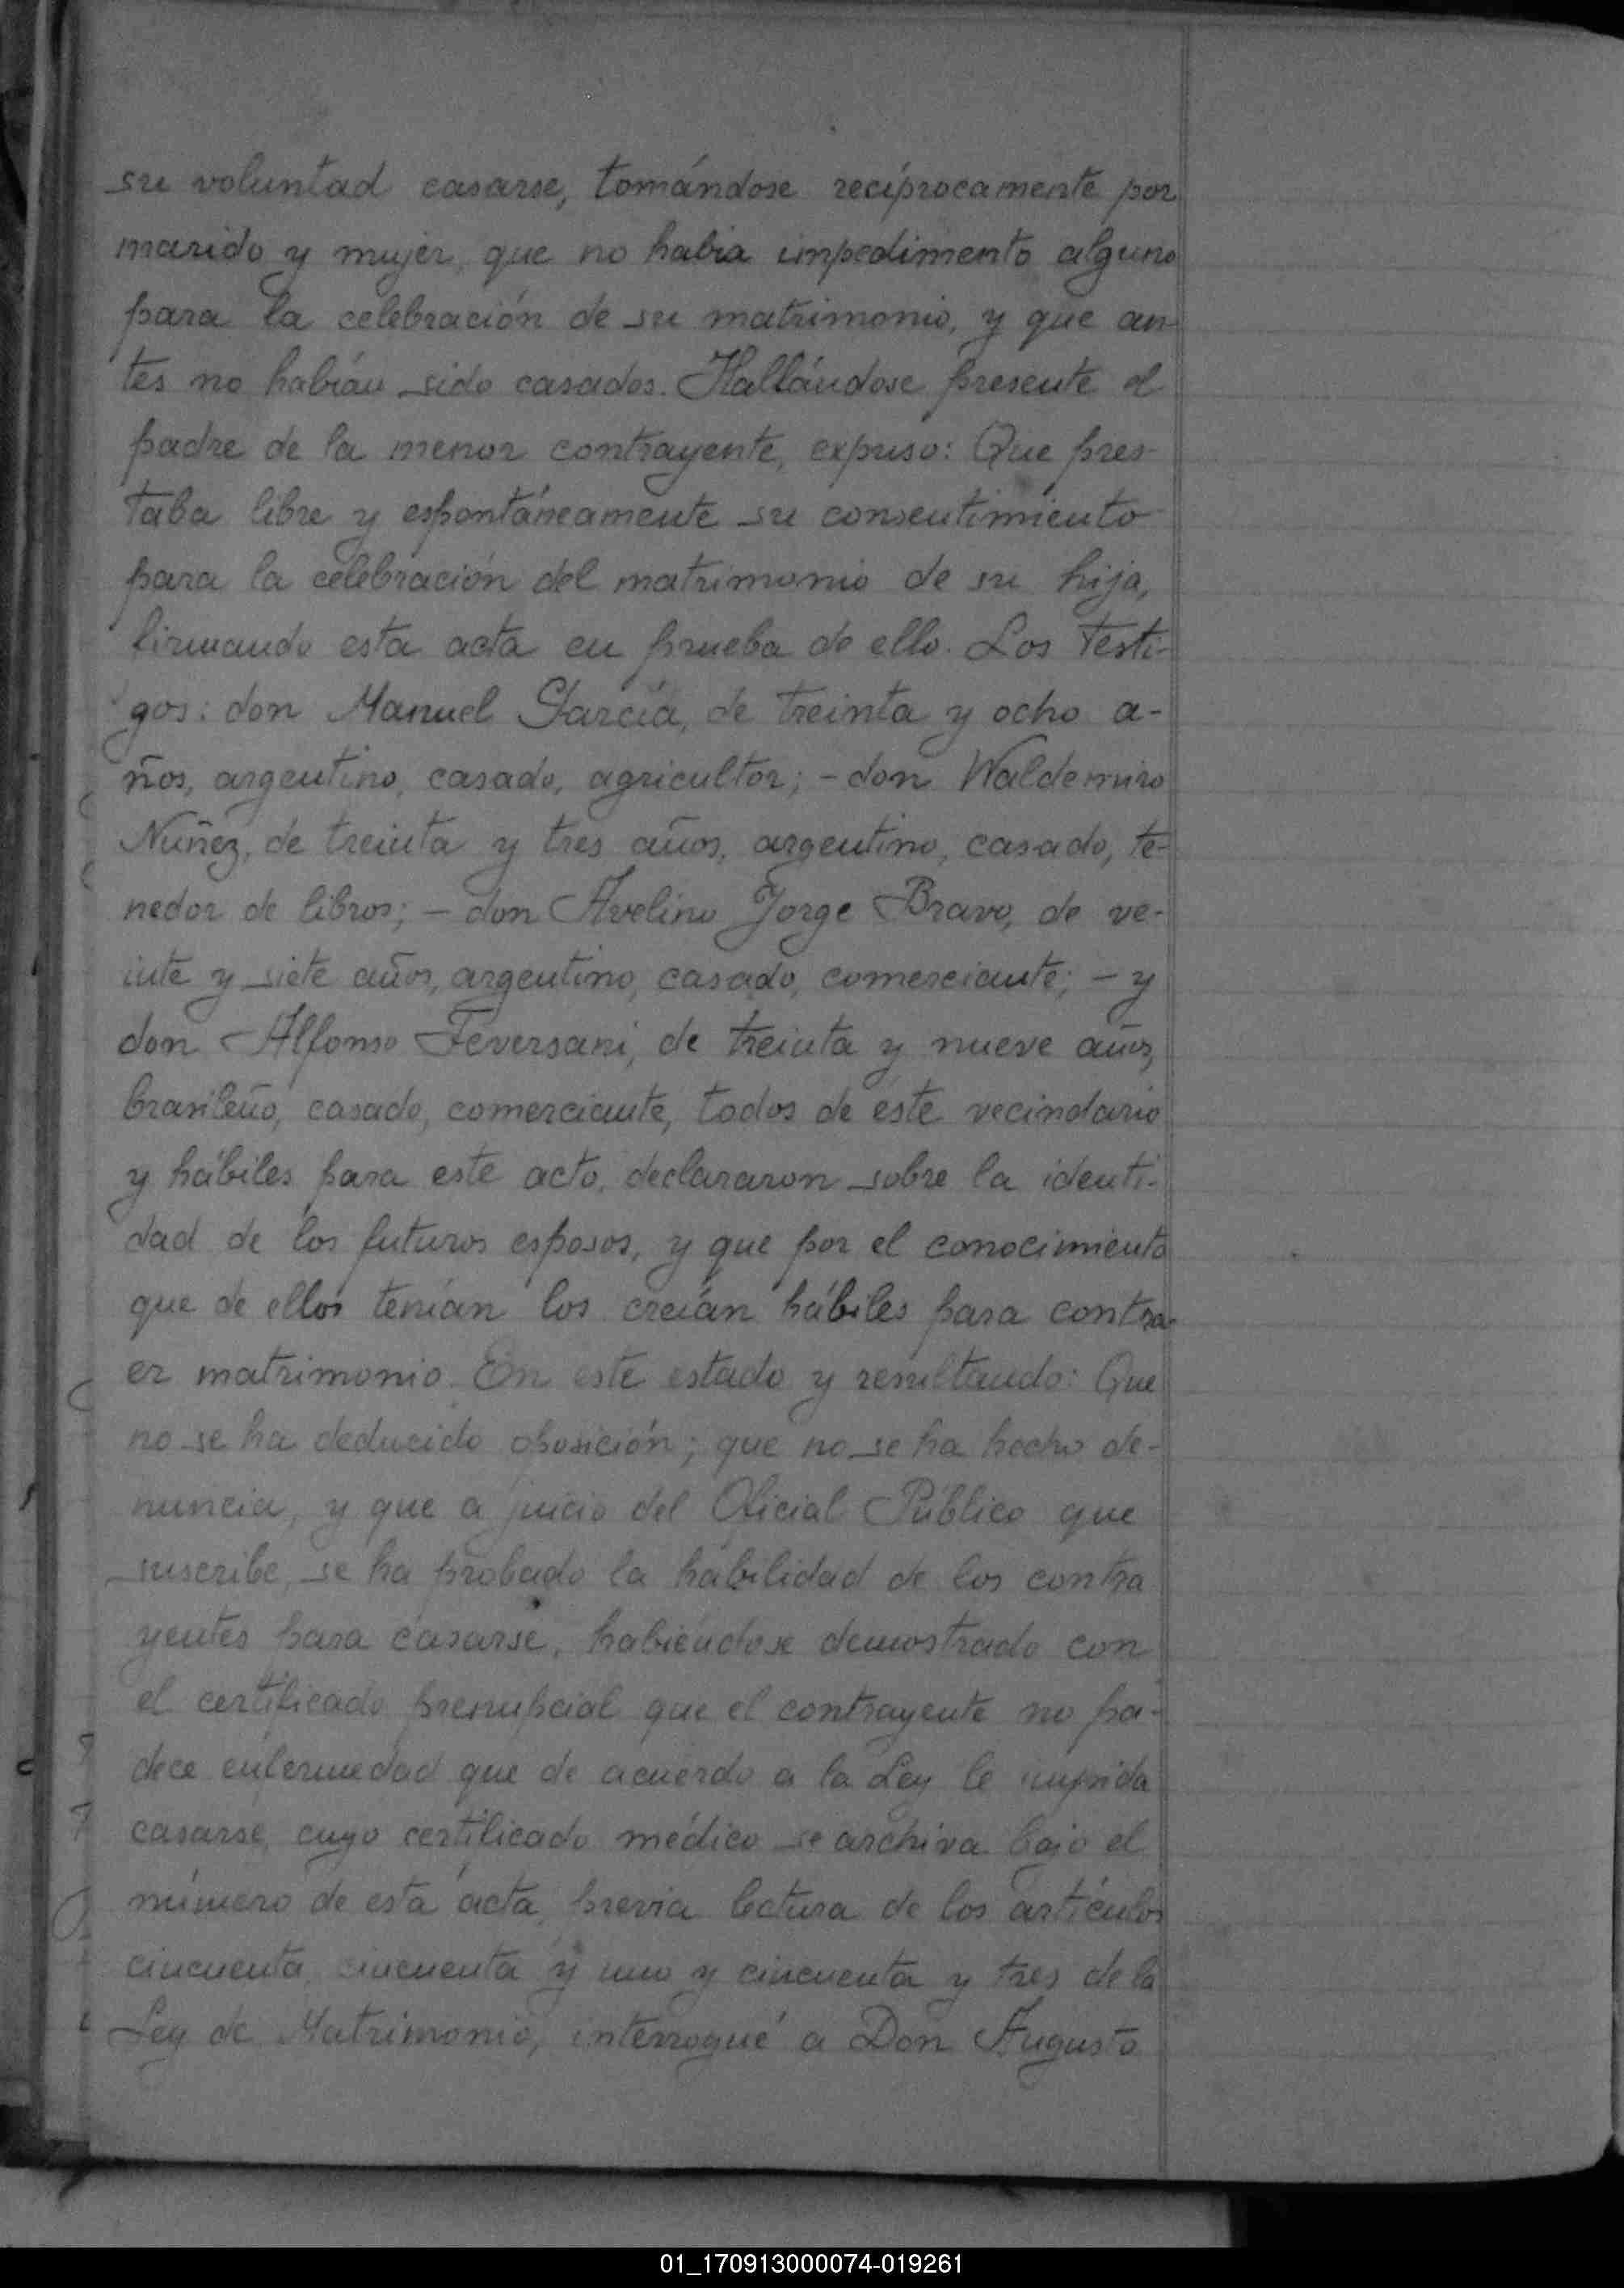 su voluntad casarse, tomándose recíprocamente por
marido y mujer, que no habia impedimento alguno
para la celebración de su matrimonio, y que an-
tes no habían sido casados. Hallándose presente el
padre de la menor contrayente, expuso: Que pres-
taba libre y espontáneamente su consentimiento
para la celebración del matrimonio de su hija,
firmando esta acta en prueba de ello. Los testi-
gos: don Manuel García, de treinta y ocho a-
ños, argentino, casado, agricultor; - don Waldemiro
Núñez, de treinta y tres años, argentino, casado, te-
nedor de libros; - don Avelino Jorge Bravo, de ve-
inte y siete años, argentino, casado, comerciante; - y
don Alfonso Feversani, de treinta y nueve años,
brasileño, casado, comerciante, todos de este vecindario
y hábiles para este acto, declararon sobre la identi-
dad de los futuros esposos, y que por el conocimiento
que de ellos tenían los creían hábiles para contra-
er matrimonio. En este estado y resultando: Que
no se ha deducido oposición; que no se ha hecho de-
nuncia, y que a juicio del Oficial Público que
suscribe, se ha probado la habilidad de los contra
yentes para casarse, habiéndose demostrado con
el certificado prenupcial que el contrayente no pa-
dece enfermedad que de acuerdo a la Ley le impida
casarse, cuyo certificado médico se archiva bajo el
número de esta acta, previa lectura de los artículos
cincuenta, cincuenta y uno y cincuenta y tres de la
Ley de Matrimonio, interrogué a Don Augusto
01_170913000074-019261